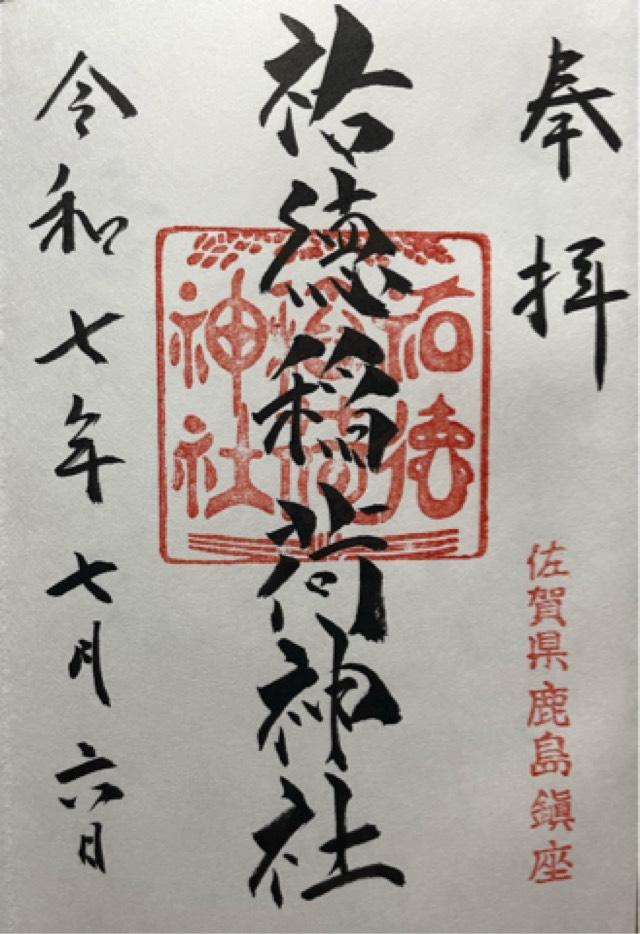 奉拝
佐賀県鹿島鎮座
祐徳稲荷神社
祐徳
稲荷
神社
令和七年七月六日